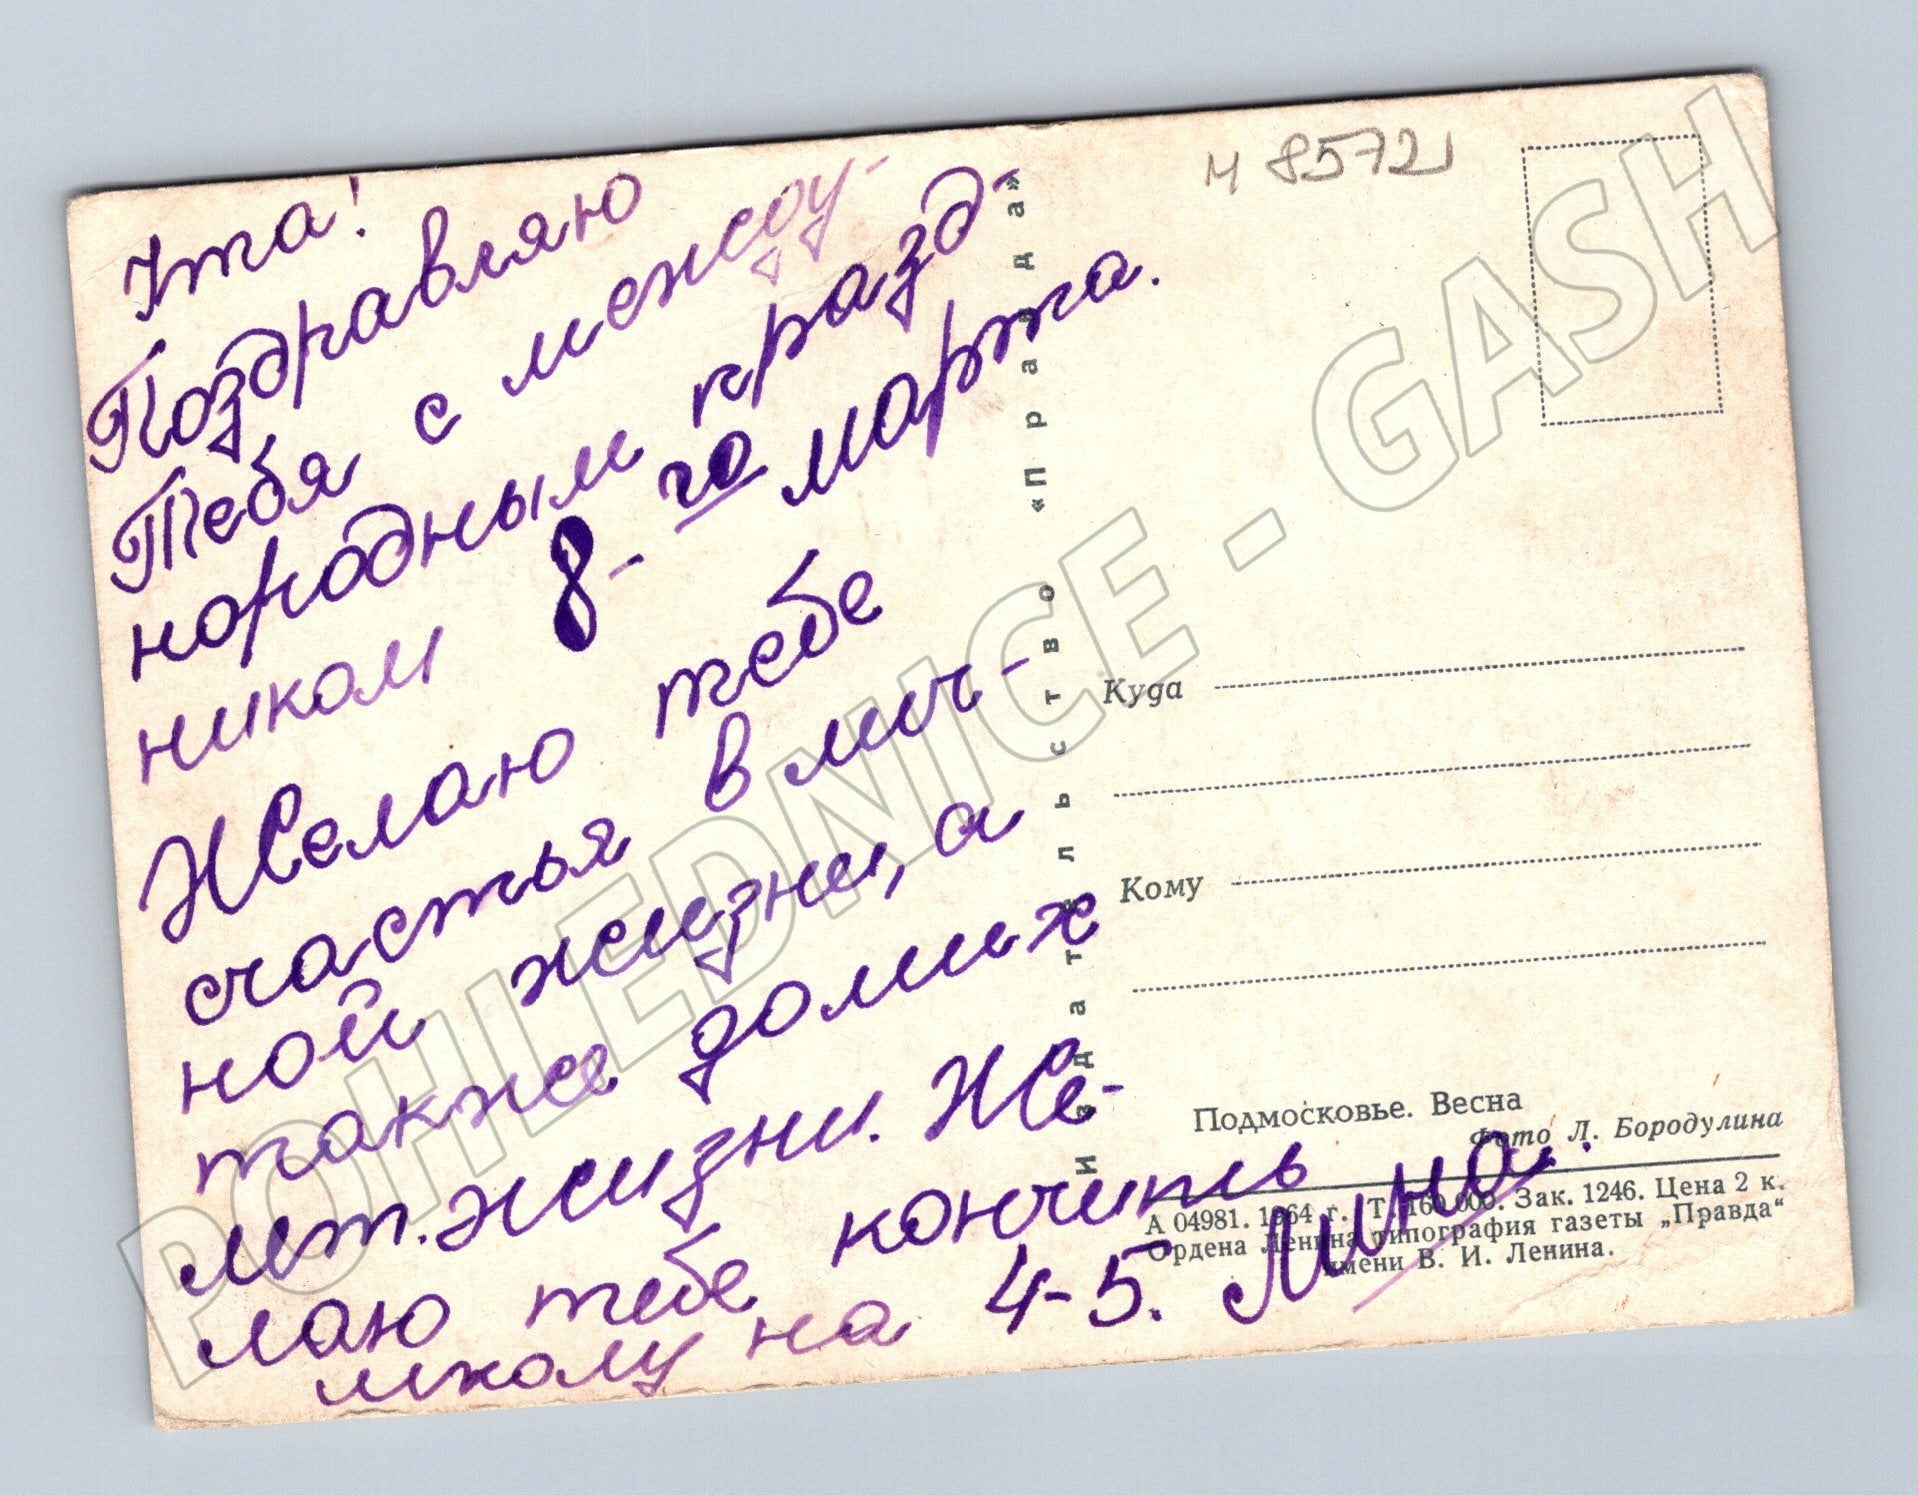 Ута!
Поздравляю
Тебя с между-
народным празд-
ником 8-го марта.
Желаю тебе
счастья в лич-
ной жизни, а
также
жизни. Же-
лаю тебе кончить
школу на 4-5. Лина.
И 8572
Издательство «Правда»
Куда
Кому
Подмосковье. Весна
Фото Л. Бородулина
А 04981. 1964 г. Т. 160 000. Зак. 1246. Цена 2 к.
Ордена Ленина типография газеты „Правда“
имени В. И. Ленина.
POHLEDNICE - GASH